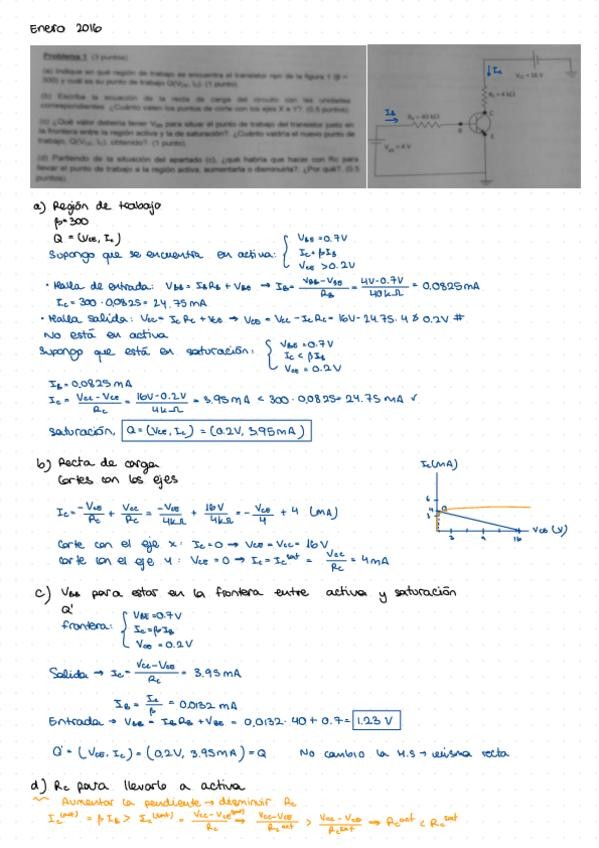 Enero 2016
Problema 1 (3 puntos)
(a) Indique en qué región de trabajo se encuentra el transistor npn de la figura 1 (β =
300) y cuál es su punto de trabajo Q(VCE, IC). (1 punto)
(b) Escriba la ecuación de la recta de carga del circuito con las unidades
correspondientes. ¿Cuánto valen los puntos de corte con los ejes X e Y? (0.5 puntos)
(c) ¿Qué valor debería tener VBB para situar el punto de trabajo del transistor justo en
la frontera entre la región activa y la de saturación? ¿Cuánto valdría el nuevo punto de
trabajo, Q(VCE, IC), obtenido? (1 punto)
(d) Partiendo de la situación del apartado (c), ¿qué habría que hacer con Rc para
llevar el punto de trabajo a la región activa, aumentarla o disminuirla? ¿Por qué? (0.5
puntos)
Ic
Vcc = 16 V
Rc = 4 kΩ
IB
RB = 40 kΩ
B
C
E
VBB = 4 V
a) Región de trabajo
β=300
Q = (VCE, Ic)
Supongo que se encuentra en activa: { VBE = 0.7V
Ic = βIB
VCE > 0.2V
• Malla de entrada: VBB = IBRB + VBE → IB = (VBB-VBE)/RB = (4V-0.7V)/40kΩ = 0.0825mA
Ic = 300 · 0.0825 = 24.75 mA
• Malla salida: Vcc = Ic Rc + VCE → VCE = Vcc - IcRc = 16V - 24.75 · 4 ≯ 0.2V #
No está en activa
Supongo que está en saturación: { VBE = 0.7V
Ic < βIB
VCE = 0.2V
IB = 0.0825 mA
Ic = (Vcc - VCE)/Rc = (16V-0.2V)/4kΩ = 3.95 mA < 300·0.0825 = 24.75 mA ✓
saturación, Q = (VCE, Ic) = (0.2V, 3.95mA)
b) Recta de carga
Cortes con los ejes
Ic = -VCE/Rc + Vcc/Rc = -VCE/4kΩ + 16V/4kΩ = -VCE/4 + 4 (mA)
Corte con el eje x: Ic = 0 → VCE = Vcc = 16V
Corte con el eje y: VCE = 0 → Ic = Ic^sat = Vcc/Rc = 4mA
Ic(mA)
6
4
3
Q
3
9
16
VCE (V)
c) VBB para estar en la frontera entre activa y saturación
Q'
frontera: { VBE = 0.7V
Ic = βIB
VCE = 0.2V
Salida → Ic = (Vcc-VCE)/Rc = 3.95 mA
IB = Ic/β = 0.0132 mA
Entrada → VBB = IBRB + VBE = 0.0132 · 40 + 0.7 = 1.23 V
Q' = (VCE, Ic) = (0.2V, 3.95mA) = Q No cambio la M.S → misma recta
d) Rc para llevarlo a activa
Aumentar la pendiente → disminuir Rc
Ic(act) = β IB > Ic(sat) = (Vcc - VCE(sat))/Rc → (Vcc-VCE)/Rc^act > (Vcc - VCE)/Rc^sat → Rc^act < Rc^sat